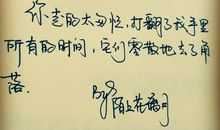 你走的太匆忙,打翻了我手里
所有的时间,它们零散地去了角
落.
陌上花满月